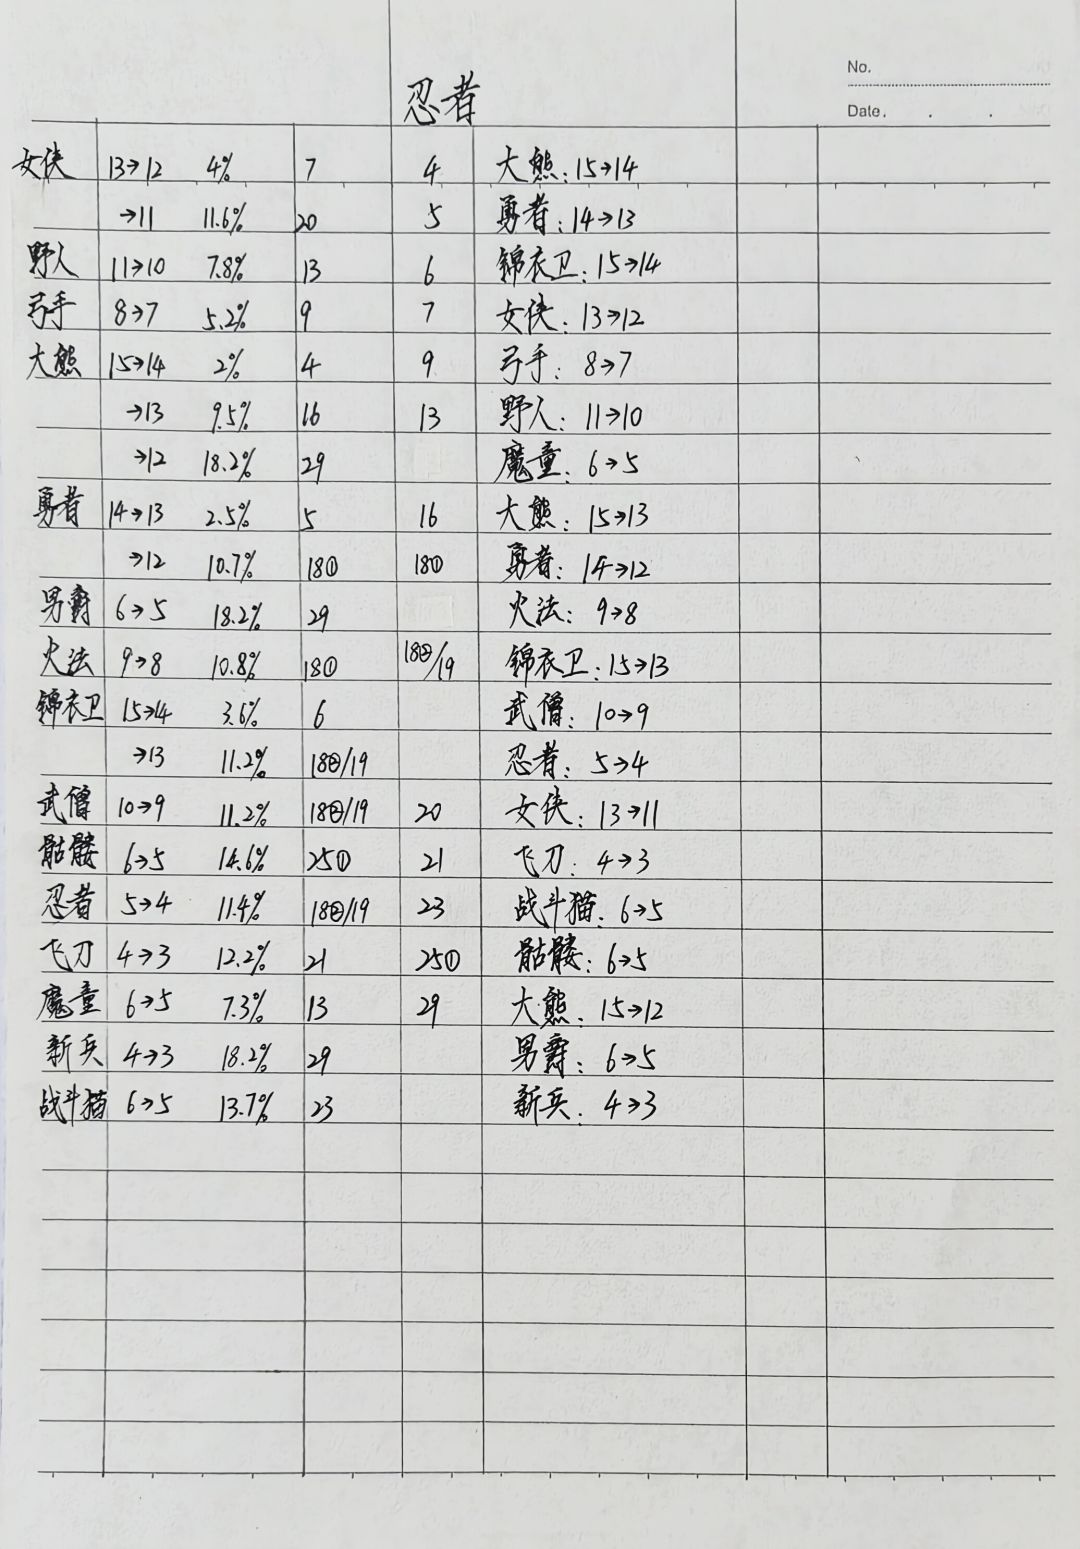 No.
忍者
Date. . .
女侠 13→12 4% 7 4 大熊:15→14
→11 11.6% 20 5 勇者:14→13
野人 11→10 7.8% 13 6 锦衣卫:15→14
弓手 8→7 5.2% 9 7 女侠:13→12
大熊 15→14 2% 4 9 弓手:8→7
→13 9.5% 16 13 野人:11→10
→12 18.2% 29 魔童:6→5
勇者 14→13 2.5% 5 16 大熊:15→13
→12 10.7% 18① 18① 勇者:14→12
男爵 6→5 18.2% 29 火法:9→8
火法 9→8 10.8% 18① 18②/19 锦衣卫:15→13
锦衣卫 15→14 3.6% 6 武僧:10→9
→13 11.2% 18②/19 忍者:5→4
武僧 10→9 11.2% 18②/19 20 女侠:13→11
骷髅 6→5 14.6% 25① 21 飞刀:4→3
忍者 5→4 11.4% 18②/19 23 战斗猫:6→5
飞刀 4→3 12.2% 21 25① 骷髅:6→5
魔童 6→5 7.3% 13 29 大熊:15→12
新兵 4→3 18.2% 29 男爵:6→5
战斗猫 6→5 13.7% 23 新兵:4→3